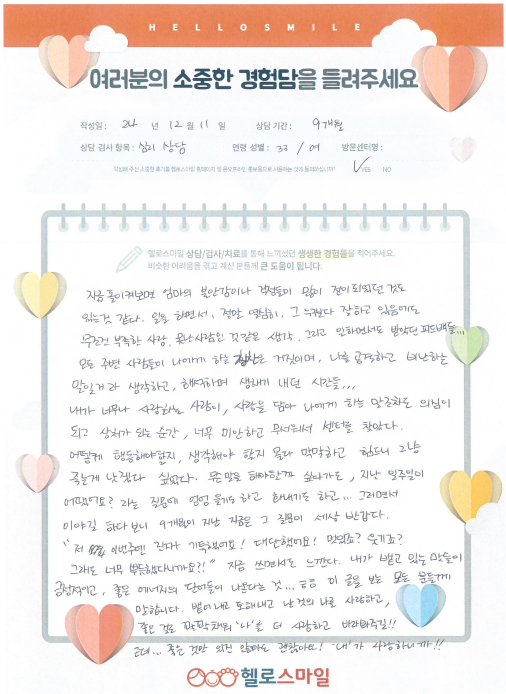 HELLOSMILE
여러분의 소중한 경험담을 들려주세요
작성일 : 24 년 12 월 11 일 상담 기간 : 9개월
상담 검사 항목 : 심리 상담 연령 성별 : 33 / 여 방문센터명 :
작성해 주신 소중한 후기를 헬로스마일 홈페이지 및 온오프라인 홍보용으로 사용하는 것에 동의하십니까? YES NO
헬로스마일 상담/검사/치료를 통해 느끼셨던 생생한 경험들을 적어주세요.
비슷한 어려움을 겪고 계신 분들께 큰 도움이 됩니다.
지금 돌이켜보면 엄마의 불안감이나 걱정들이 많이 전이 되었던 것도
있는것 같다. 일을 하면서, 정말 열심히, 그 누구보다 잘하고 있음에도
무조건 부족한 사람, 못난사람인 것 같은 생각. 그리고 일하면서도 받았던 피드백들...
모든 주변 사람들이 나에게 하는 칭찬은 거짓이며, 나를 공격하고 비난하는
말일거라 생각하고, 해석하며 생채기 내던 시간들...
내가 너무나 사랑하는 사람이, 사랑을 담아 나에게 하는 말조차도 의심이
되고 상처가 되는 순간, 너무 미안하고 무서워서 센터를 찾았다.
어떻게 행동해야할지, 생각해야 할지 몰라 막막하고 힘드니 그냥
죽는게 낫겠다 싶었다. 무슨말을 해야한까 싶다가도, 지난 일주일이
어땠어요? 라는 질문에 엉엉 울기도 하고 화내기도 하고... 그러면서
이야길 하다보니 9개월이 지난 지금은 그 질문이 세상 반갑다.
"저 이번주엔 잔다 기특했어요! 대단했어요! 멋있죠? 웃기죠?
그래도 너무 뿌듯했다니까요?!" 지금 쓰면서도 느낀다. 내가 뱉고 있는 말들이
긍정적이고, 좋은 에너지의 단어들이 나온다는 것... ㅎㅎ 이 글을 보는 모든 분들께
말합니다. 뱉어내고 토해내고 난 것의 나를 사랑하고,
좋은 걸로 꽉꽉 채워 '나'를 더 사랑하고 바라봐주길!!
근데... 좋은 것만 있진 않아도 괜찮아요! '내'가 사랑하니까!!
헬로스마일